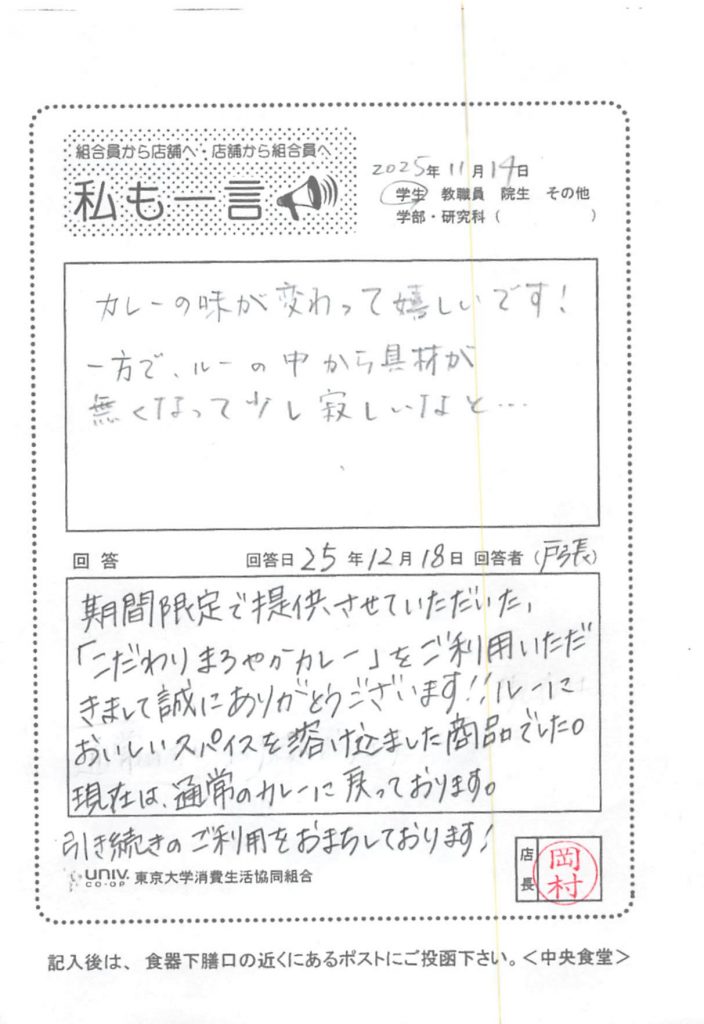 組合員から店舗へ・店舗から組合員へ
私も一言
2025年11月14日
学生 教職員 院生 その他
学部・研究科（ ）
カレーの味が変わって嬉しいです！
一方で、ルーの中から具材が
無くなって少し寂しいなと…
回答 回答日25年12月18日 回答者（戸張）
期間限定で提供させていただいた、
「こだわりまろやかカレー」をご利用いただ
きまして誠にありがとうございます!!ルーに
おいしいスパイスを溶け込ました商品でした。
現在は、通常のカレーに戻っております。
引き続きのご利用をおまちしております！
店長
岡村
UNIV. CO-OP 東京大学消費生活協同組合
記入後は、食器下膳口の近くにあるポストにご投函下さい。＜中央食堂＞